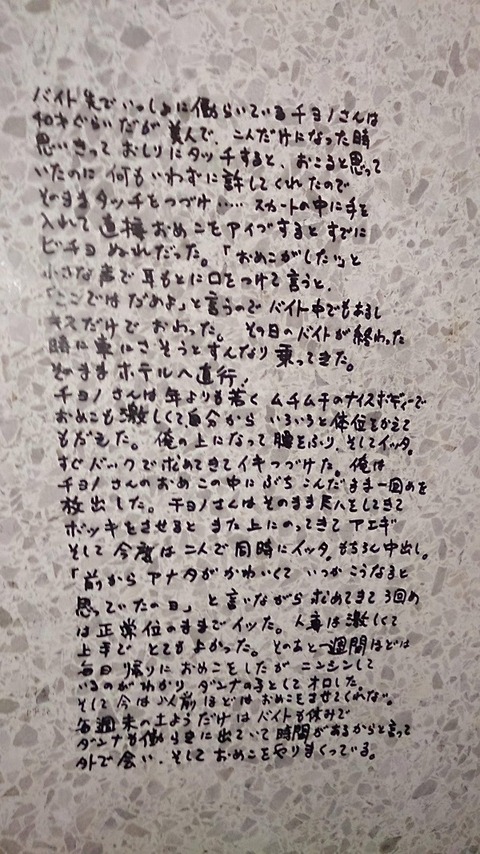 バイト先でいっしょに働らいているチヨノさんは
才ぐらいだが 美人で、二人だけになった時
思いきって おしりにタッチすると、おこると思って
いたのに 何もいわずに許してくれたので
そのままタッチをつづけ…… スカートの中に手を
入れて 直接おめこをアイブすると すでに
ビチョ ぬれだった。「おめこがしたい」と
小さな声で 耳もとに口をつけて言うと、
「ここではだめよ」と言うので バイト中でもあるし
キスだけで おわった。 その日のバイトが終わった
時に車にさそうとすんなり 乗ってきた。
そのまま ホテルへ直行!
チヨノさんは 年よりも若く ムチムチのナイスボディーで
おめこも激しくて自分から いろいろと体位をかえて
もだえた。俺の上になって 腰をふり、そしてイッタ。
すぐバックで求めてきてイキつづけた。俺は
チヨノさんのおめこの中にぶちこんだまま一回めを
放出した。チヨノさんはそのまま尺八をしてきて
ボッキをさせると また上にのってきてアエギ
そして 今度は二人で同時にイッタ。もちろん中出し。
「前から アナタがかわいくて いつかこうなると
思っていたのヨ」と言いながら 求めてきて 3回め
は正常位のままでイッた。人妻は激しくて
上手で とてもよかった。そのあと一週間ほどは
毎日 帰りに おめこをしたが ニンシンして
いるのがわかり ダンナの子としてオロした。
そして 今は 以前ほどは おめこをさせてくれない。
毎週末の土ようだけは バイトも休みで
ダンナも働らきに出ていて 時間があるからと言って
外で会い、そして おめこをやりまくっている。